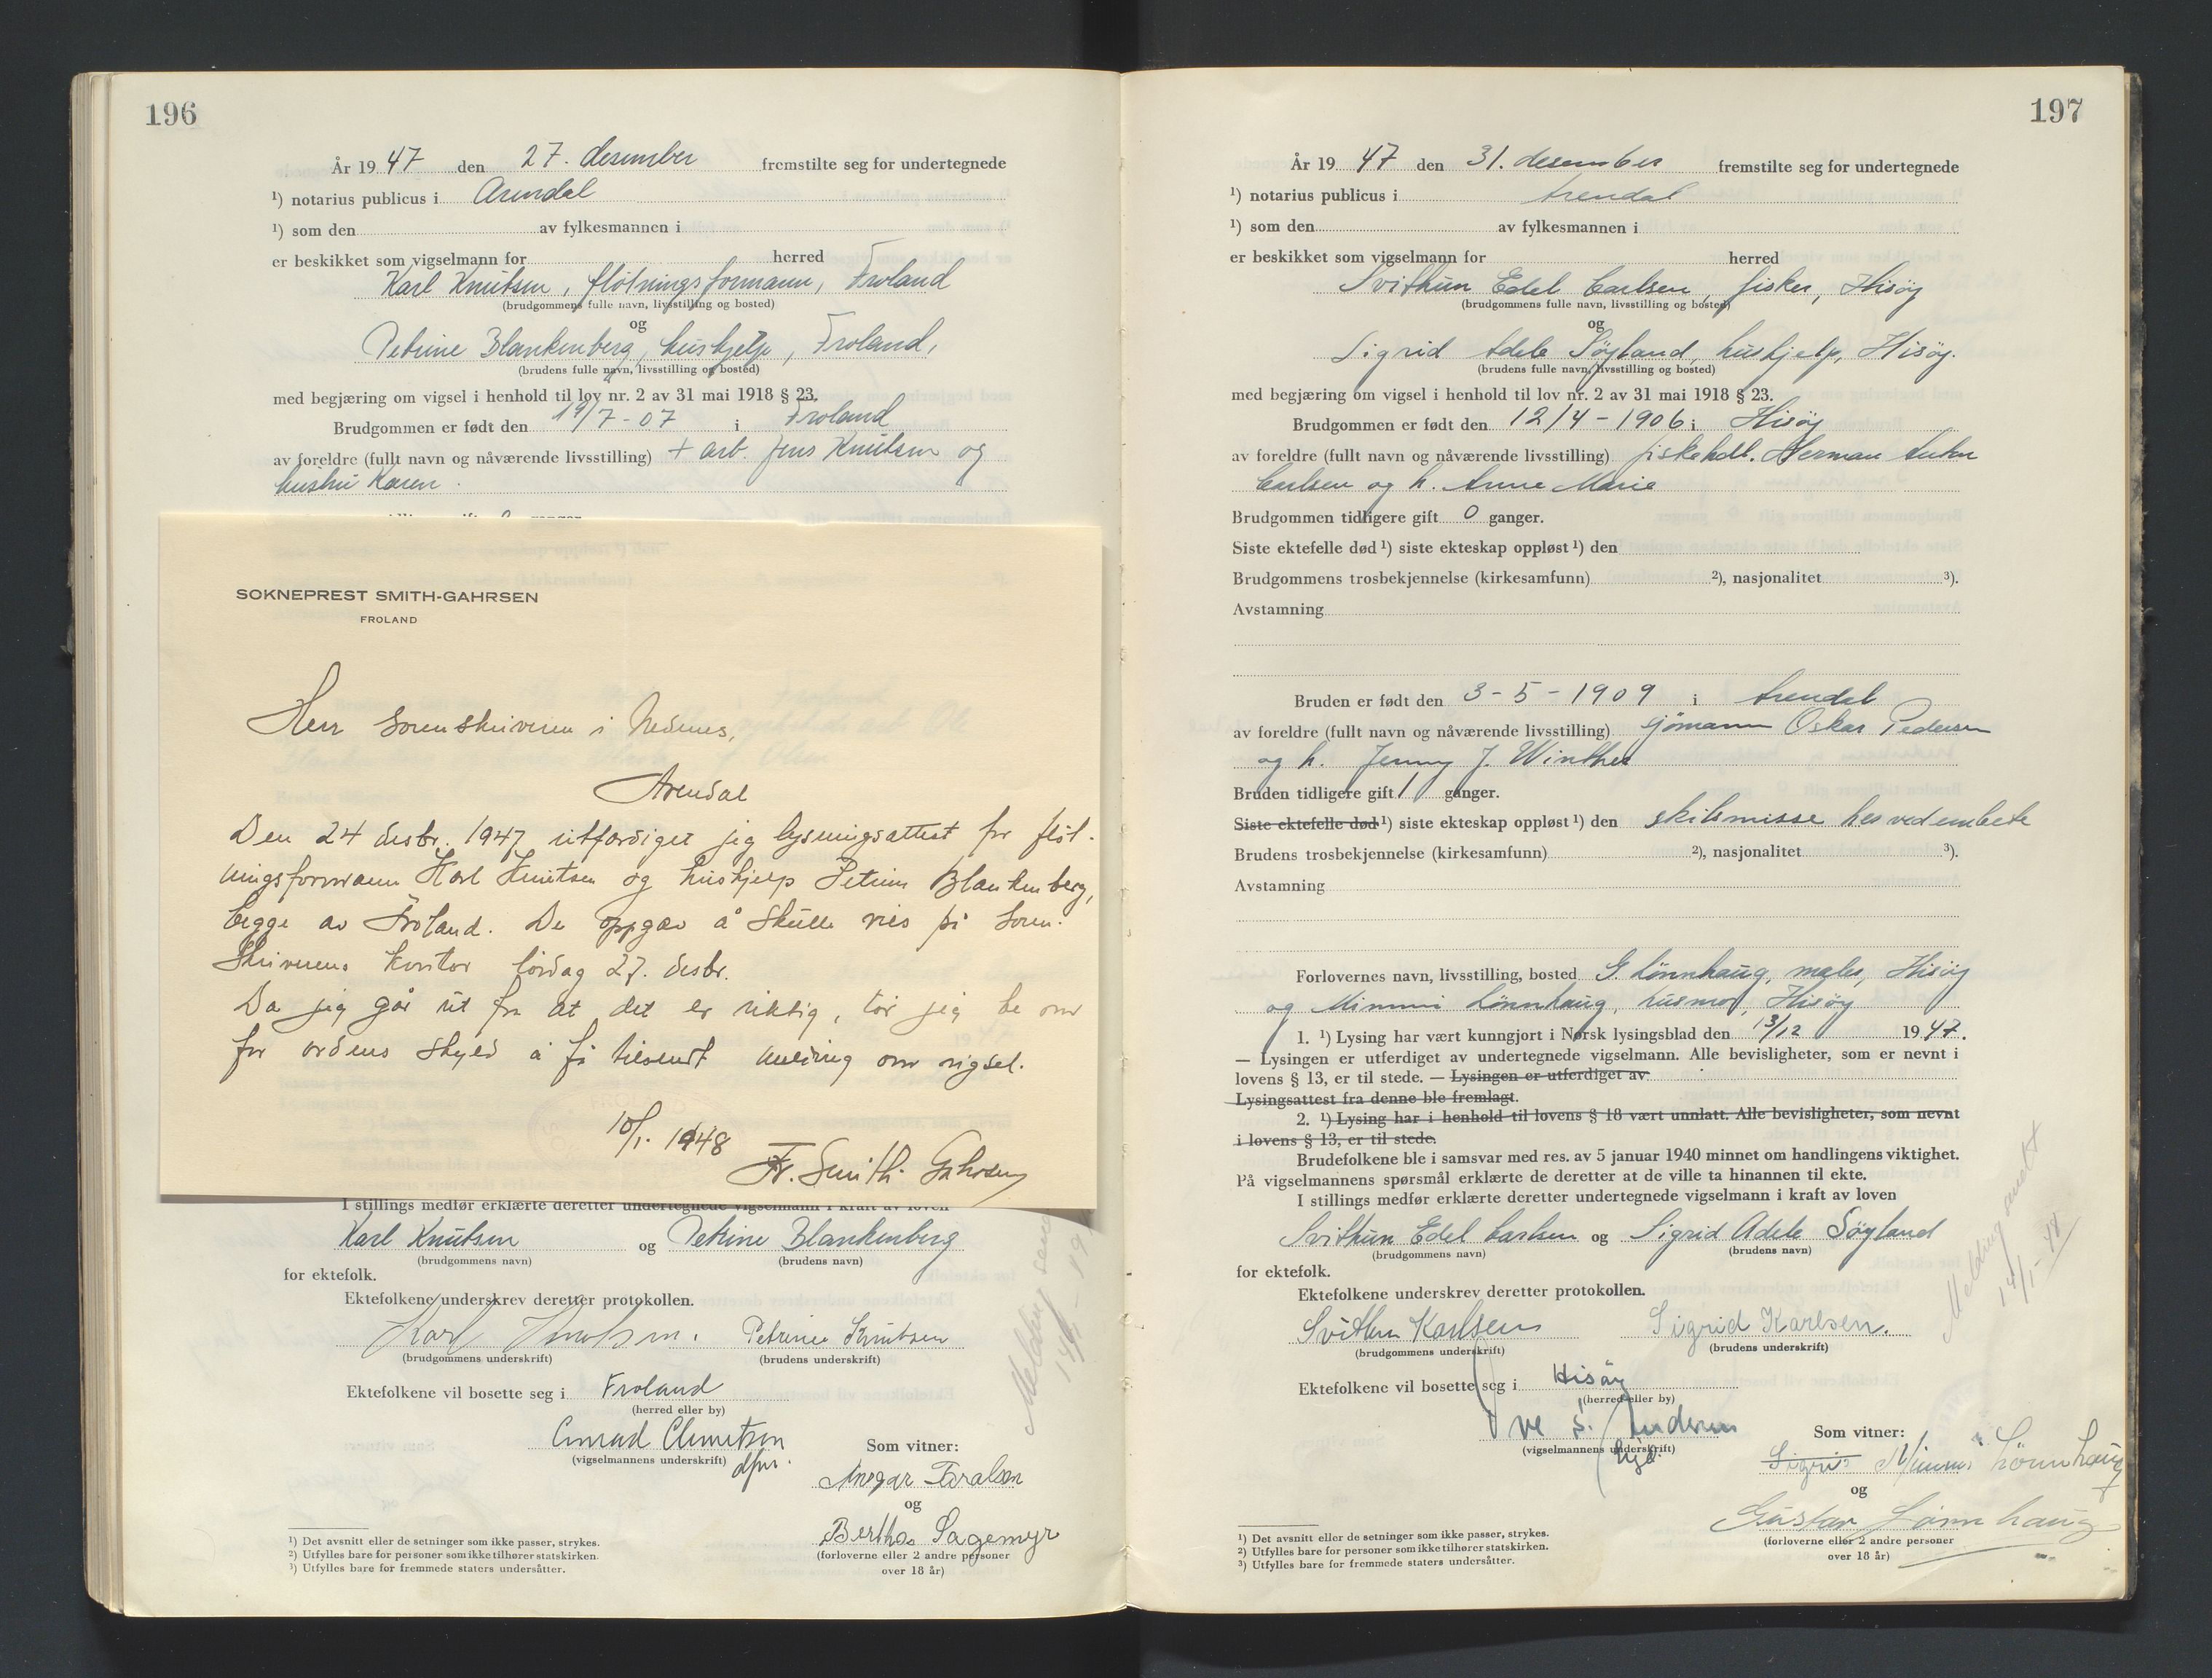 196
År 19 47 den 27. desember fremstilte seg for undertegnede
¹) notarius publicus i Arendal
¹) som den av fylkesmannen i
er beskikket som vigselmann for herred
Karl Knutsen, fløtningsformann, Froland
(brudgommens fulle navn, livsstilling og bosted)
og
Petrine Blankenberg, hushjelp, Froland,
(brudens fulle navn, livsstilling og bosted)
med begjæring om vigsel i henhold til lov nr. 2 av 31 mai 1918 § 23.
Brudgommen er født den 19/7-07 i Froland
av foreldre (fullt navn og nåværende livsstilling) + arb. Jens Knutsen og
hustru Karen.
SOKNEPREST SMITH-GAHRSEN
FROLAND
Herr Sorenskriveren i Nedenes,
Arendal
Den 24 desbr. 1947 utferdiget jeg lysningsattest for fløt-
ningsformann Karl Knutsen og hushjelp Petrine Blankenberg,
begge av Froland. De oppgav å skulle vies på Soren-
skriverens kontor lördag 27. desbr.
Da jeg går ut fra at det er riktig, tör jeg be om
for ordens skyld å få tilsendt melding om vigsel.
10/1. 1948
Fr. Smith-Gahrsen
I stillings medfør erklærte deretter undertegnede vigselmann i kraft av loven
Karl Knutsen og Petrine Blankenberg
(brudgommens navn) (brudens navn)
for ektefolk.
Ektefolkene underskrev deretter protokollen.
Karl Knutsen. Petrine Knutsen
(brudgommens underskrift) (brudens underskrift)
Ektefolkene vil bosette seg i Froland
(herred eller by)
Conrad Clemetsen
(vigselmannens underskrift) dfm.
Som vitner:
Ansgar Foralsen
og
Bertha Sagemyr
(forloverne eller 2 andre personer
over 18 år)
Melding
¹) Det avsnitt eller de setninger som ikke passer, strykes.
²) Utfylles bare for personer som ikke tilhører statskirken.
³) Utfylles bare for fremmede staters undersåtter.
197
År 19 47 den 31. desember fremstilte seg for undertegnede
¹) notarius publicus i Arendal
¹) som den av fylkesmannen i
er beskikket som vigselmann for herred
Svithun Edel Carlsen, fisker, Hisøy
(brudgommens fulle navn, livsstilling og bosted)
og
Sigrid Adele Søyland, hushjelp, Hisøy.
(brudens fulle navn, livsstilling og bosted)
med begjæring om vigsel i henhold til lov nr. 2 av 31 mai 1918 § 23.
Brudgommen er født den 12/4-1906 i Hisøy
av foreldre (fullt navn og nåværende livsstilling) fiskehdl. Herman Anton
Carlsen og h. Anne Marie
Brudgommen tidligere gift 0 ganger.
Siste ektefelle død ¹) siste ekteskap oppløst ¹) den
Brudgommens trosbekjennelse (kirkesamfunn) ²), nasjonalitet ³).
Avstamning
Bruden er født den 3-5-1909 i Arendal
av foreldre (fullt navn og nåværende livsstilling) sjømann Oskar Pedersen
og h. Jenny J. Winther
Bruden tidligere gift 1 ganger.
Siste ektefelle død ¹) siste ekteskap oppløst ¹) den skilsmisse her ved embete
Brudens trosbekjennelse (kirkesamfunn) ²), nasjonalitet ³).
Avstamning
Forlovernes navn, livsstilling, bosted G. Lönnhaug, maler, Hisøy
og Mimmi Lönnhaug, husmor, Hisøy
1. ¹) Lysing har vært kunngjort i Norsk lysingsblad den 13/12 19 47.
— Lysingen er utferdiget av undertegnede vigselmann. Alle bevisligheter, som er nevnt i
lovens § 13, er til stede. — Lysingen er utferdiget av
Lysingsattest fra denne ble fremlagt.
2. ¹) Lysing har i henhold til lovens § 18 vært unnlatt. Alle bevisligheter, som nevnt
i lovens § 13, er til stede.
Brudefolkene ble i samsvar med res. av 5 januar 1940 minnet om handlingens viktighet.
På vigselmannens spørsmål erklærte de deretter at de ville ta hinannen til ekte.
I stillings medfør erklærte deretter undertegnede vigselmann i kraft av loven
Svithun Edel Carlsen og Sigrid Adele Søyland
(brudgommens navn) (brudens navn)
for ektefolk.
Ektefolkene underskrev deretter protokollen.
Svithun Karlsen Sigrid Karlsen.
(brudgommens underskrift) (brudens underskrift)
Ektefolkene vil bosette seg i Hisøy
(herred eller by)
(vigselmannens underskrift)
Som vitner:
Sigrid Mimmi Lönnhaug
og
Gustav Lönnhaug
(forloverne eller 2 andre personer
over 18 år)
Melding sendt
14/1-48
¹) Det avsnitt eller de setninger som ikke passer, strykes.
²) Utfylles bare for personer som ikke tilhører statskirken.
³) Utfylles bare for fremmede staters undersåtter.